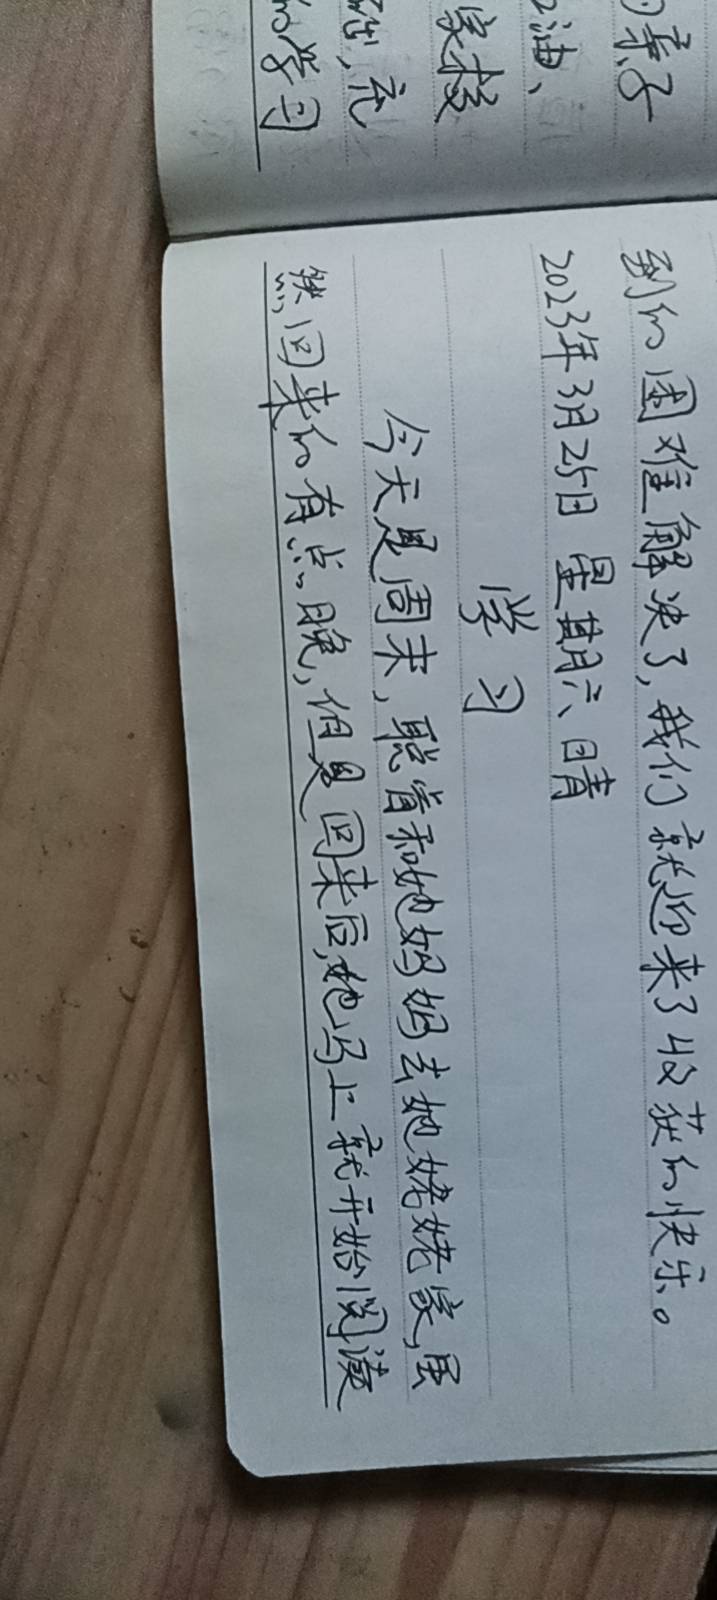 的亲子
油、
家校
础,充
的学习
到的困难解决了,我们就迎来了收获的快乐。
2023年3月25日 星期六、晴
学习
今天是周末,聪睿和她妈妈去她姥姥家,虽
然回来的有点晚,但是回来后,她马上就开始阅读